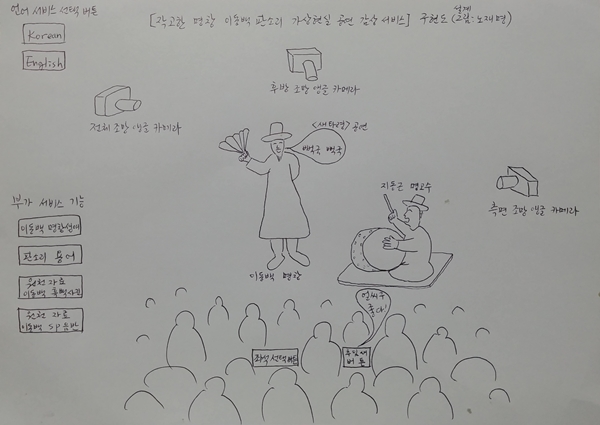 언어 서비스 선택 버튼
[작고한 명창 이동백 판소리 가상현실 공연 감상 서비스] 구현도 (설계 그림: 노재명)
Korean
English
후방 조망 앵글 카메라
전체 조망 앵글 카메라
<새타령> 공연
뻐꾹 뻐꾹
지동근 명고수
측면 조망 앵글 카메라
부가 서비스 기능
이동백 명창 설명
판소리 용어
원천 자료
이동백 흑백사진
원천 자료
이동백 SP음반
이동백 명창
얼씨구
좋다!
좌석 선택 버튼
추임새
버튼